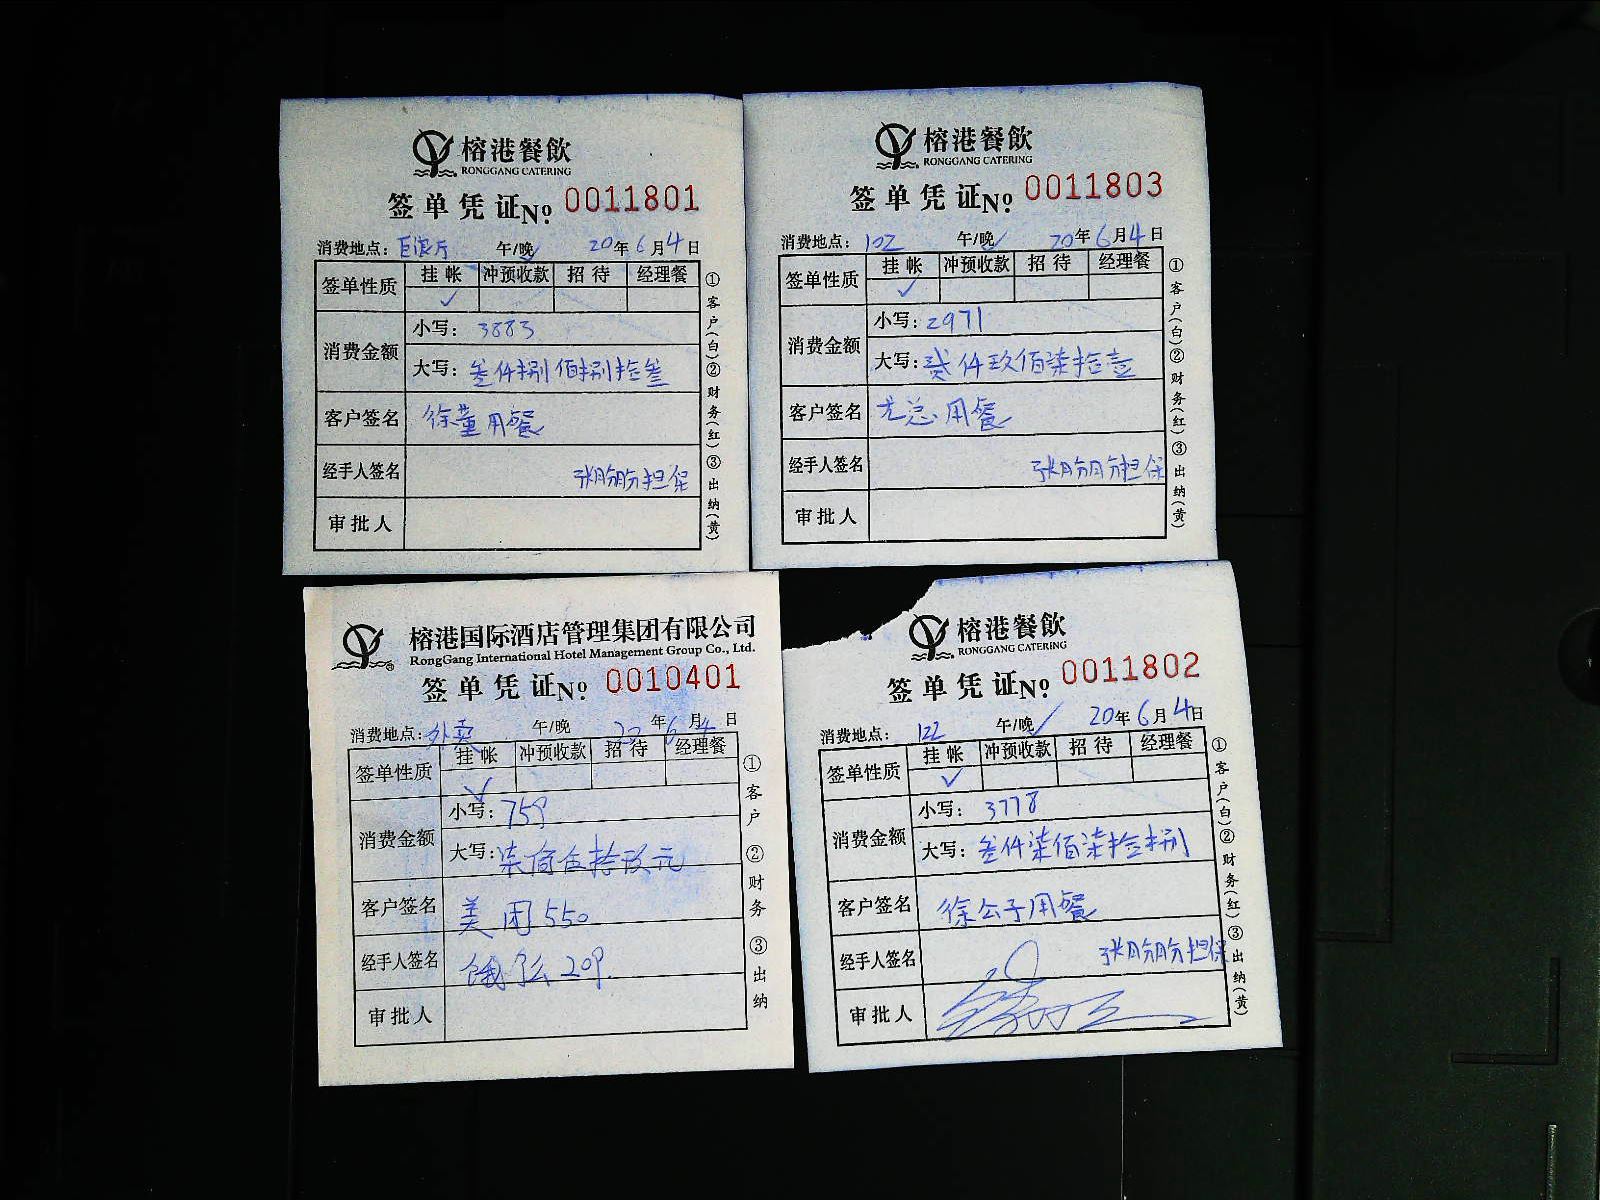 榕港餐飲
RONGGANG CATERING
签单凭证No 0011801
消费地点：巨浪厅 午/晚✓ 20年6月4日
签单性质 挂帐 冲预收款 招待 经理餐
✓
消费金额 小写：3883
大写：叁仟捌佰捌拾叁
客户签名 徐董用餐
经手人签名 张盼盼担保
审批人
①客户(白)②财务(红)③出纳(黄)
榕港餐飲
RONGGANG CATERING
签单凭证No 0011803
消费地点：102 午/晚✓ 20年6月4日
签单性质 挂帐 冲预收款 招待 经理餐
✓
消费金额 小写：2971
大写：贰仟玖佰柒拾壹
客户签名 尤总用餐
经手人签名 张盼盼担保
审批人
①客户(白)②财务(红)③出纳(黄)
榕港国际酒店管理集团有限公司
RongGang International Hotel Management Group Co., Ltd.
签单凭证No 0010401
消费地点：外卖 午/晚 20年6月4日
签单性质 挂帐 冲预收款 招待 经理餐
✓
消费金额 小写：759
大写：柒佰伍拾玖元
客户签名 美团550
经手人签名 饿了么209.
审批人
①客户 ②财务 ③出纳
榕港餐飲
RONGGANG CATERING
签单凭证No 0011802
消费地点：122 午/晚✓ 20年6月4日
签单性质 挂帐 冲预收款 招待 经理餐
✓
消费金额 小写：3778
大写：叁仟柒佰柒拾捌
客户签名 徐公子用餐
经手人签名 张盼盼担保
审批人
①客户(白)②财务(红)③出纳(黄)